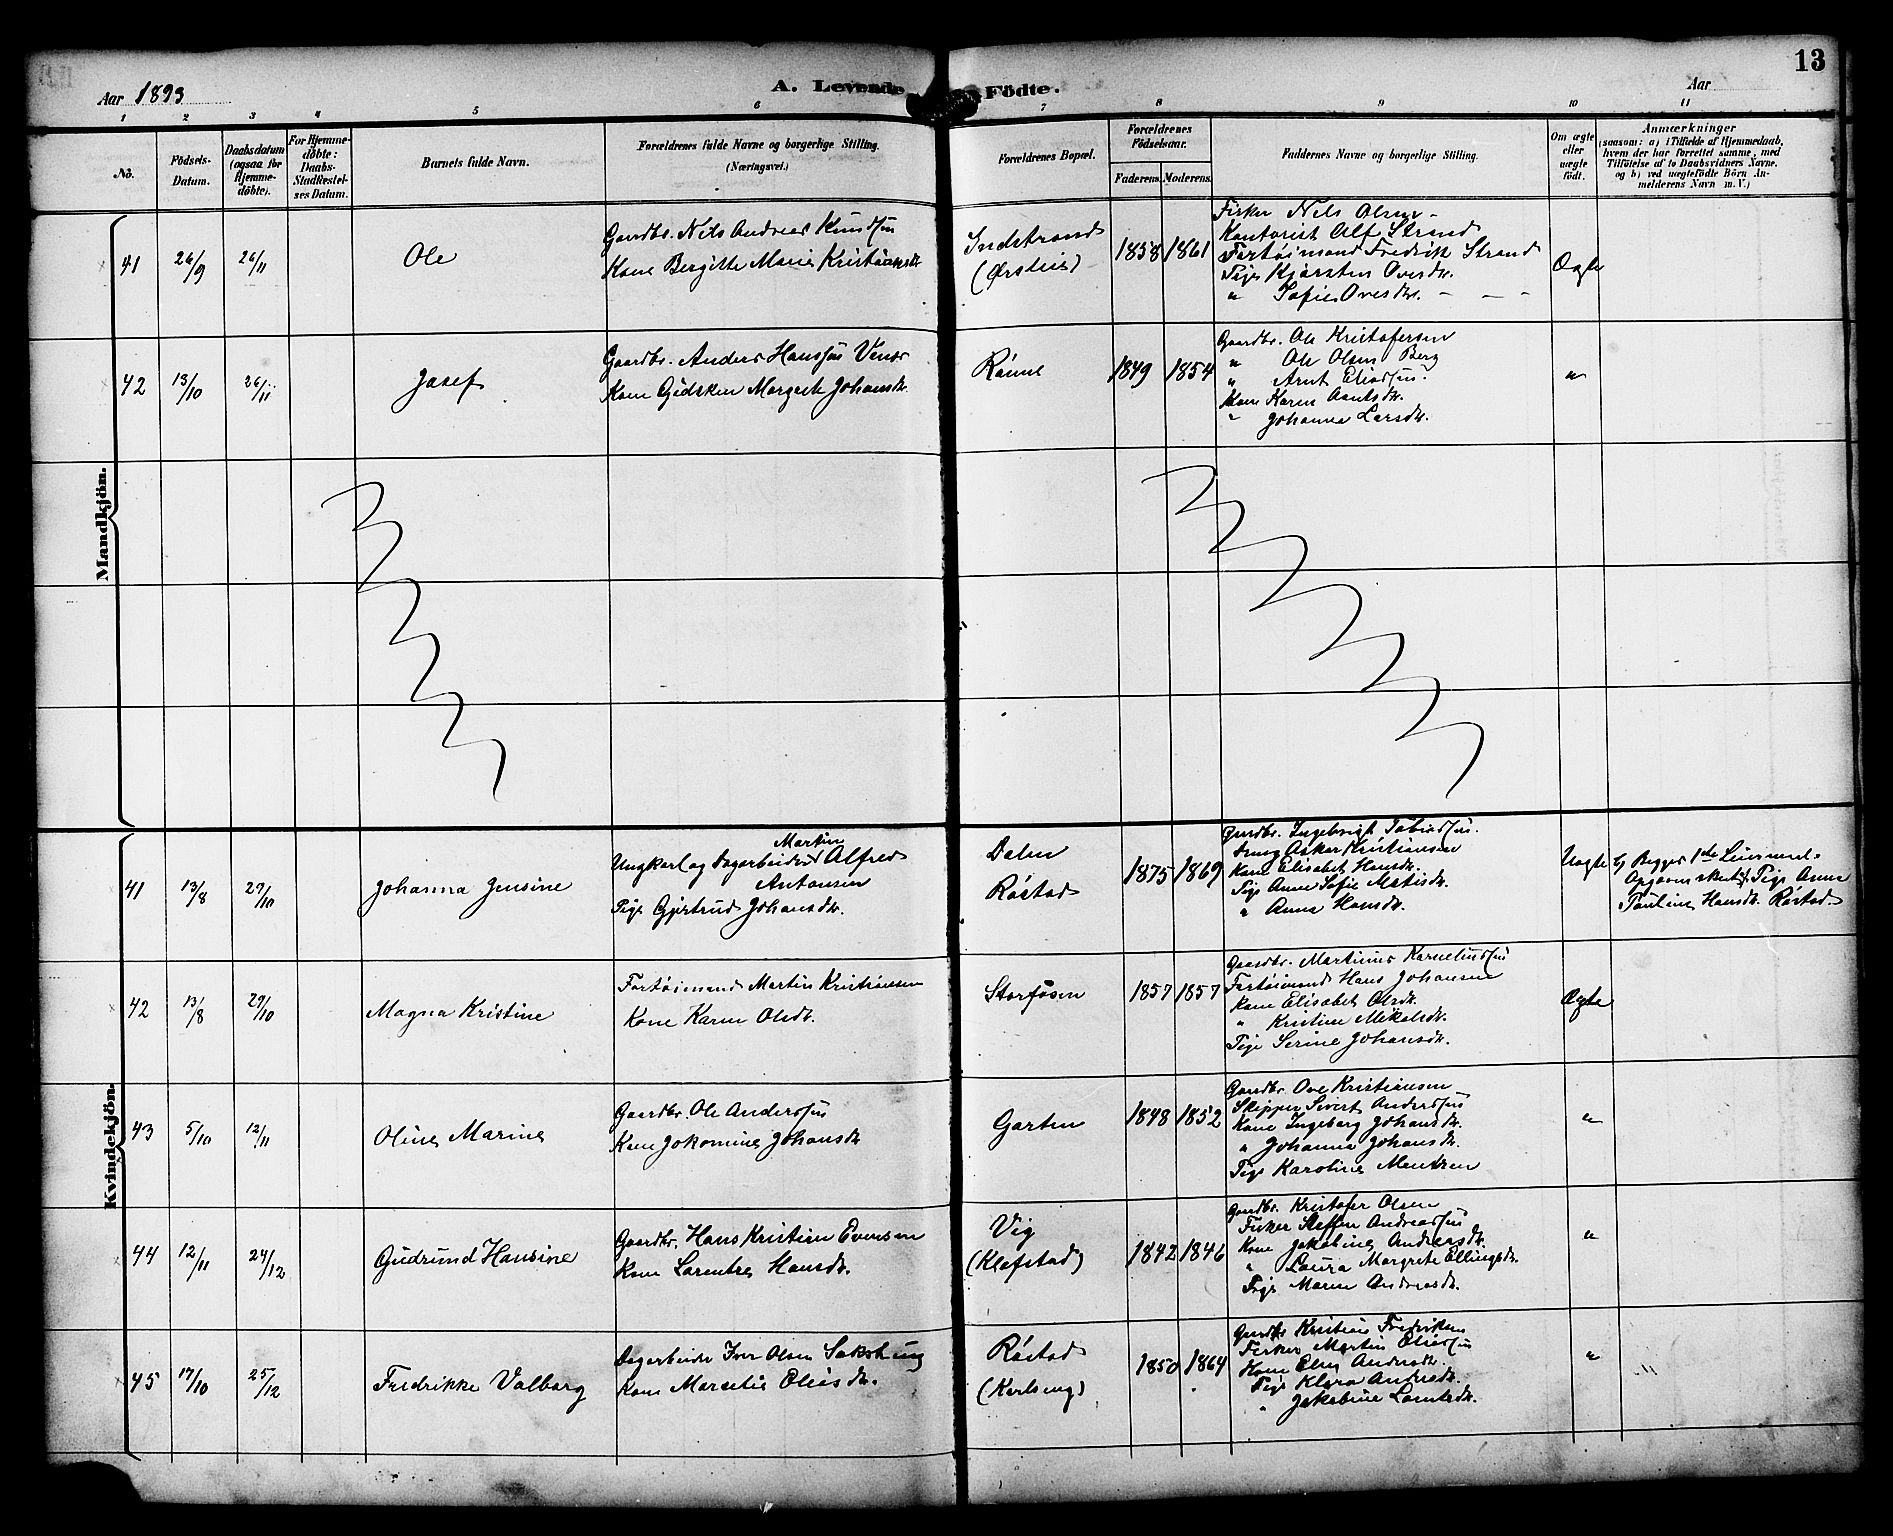 13
Aar 1893
A. Levende Födte.
Aar
1 2 3 4 5 6 7 8 9 10 11
No.
Födsels-
Datum.
Daabsdatum
(ogsaa for
Hjemme-
döbte).
For Hjemme-
döbte:
Daabs-
Stadfæstel-
ses Datum.
Barnets fulde Navn.
Forældrenes fulde Navne og borgerlige Stilling.
(Næringsvei.)
Forældrenes Bopæl.
Forældrenes
Födselsaar.
Faderens. Moderens.
Faddernes Navne og borgerlige Stilling.
Om ægte
eller
uægte
födt.
Anmærkninger
(saasom: a) i Tilfælde af Hjemmedaab,
hvem der har forrettet samme, med
Tilföielse af to Daabsvidners Navne,
og b) ved uægtefödte Börn An-
melderens Navn m. V.)
Mandkjön.
41
26/9
26/11
Ole
Gaardbr. Nils Andreas Knudsen
Kone Bergitte Marie Kristiansdr.
Indstrand
1858 1861
Fisker Nils Olsen
Kontorist Alf Strand
Fartöimand Fredrik Strand
Pige Kjersten Ovesdr.
" Sofie Ovesdr.
Ægte
42
13/10
26/11
Josef
Gaardbr. Anders Hanssen
Kone Gidsken Margrete Johansdr.
Rönne
1849 1854
Gaardbr. Ole Kristofersen
" Ole Olsen Berg
" Arnt Eliassen.
Kone Karen Arntsdr.
" Johanna Larsdr.
"
Kvindekjön.
41
13/8
29/10
Johanna Jensine
Martin
Ungkarl og Dagarbeider Alfred
Antonsen
Pige Gjertrud Johansdr.
Dalen
Röstad
1875 1869
Gaardbr. Ingebrigt Tobiassen.
Dreng Oskar Kristiansen
Kone Elisabet Hansdr.
Pige Anne Sofie Matisdr.
" Anna Hansdr.
Uægte
Begges 1ste Leiermaal.
Opgaven skeet af Pige Anna
Pauline Hansdr. Röstad.
42
13/8
29/10
Magna Kristine
Fartöimand Martin Kristiansen
Kone Karen Olsdr.
Storfosen
1857 1857
Gaardbr. Martinus Korneliussen
Fartöimand Hans Johansen
Kone Elisabet Olsdr.
" Kristine Mikalsdr.
Pige Serine Johansdr.
Ægte
43
5/10
12/11
Oline Marine
Gaardbr. Ole Anderssen
Kone Jokomine Johansdr.
Garten
1848 1852
Gaardbr. Ove Kristiansen
Skipper Sivert Anderssen
Kone Ingeborg Johansdr.
" Johanna Johansdr.
Pige Karoline Mentzen
"
44
12/11
24/12
Gudrund Hansine
Gaardbr. Hans Kristian Evensen
Kone Lorentze Hansdr.
Vig
(Klefstad)
1842 1846
Gaardbr. Kristofer Olsen
Fisker Steffen Andreassen
Kone Jakobine Andreasdr.
" Laura Margrete Ellingsdr.
Pige Maren Andreasdr.
"
45
17/10
25/12
Fredrikke Valborg
Dagarbeider Iver Olsen Sakshaug
Kone Marselie Eliasdr.
Röstad
(Karlseng)
1850 1864
Gaardbr. Kristian Fredriksen
Fisker Martin Eliassen
Kone Elen Andreasdr.
Pige Klara Andreasdr.
" Jakobine Lorntsdr.
"